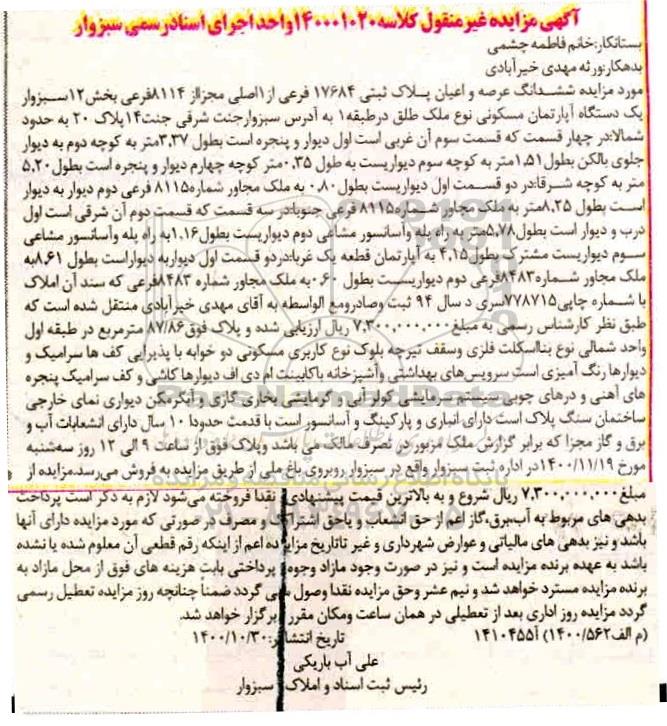 آگهی مزایده غیرمنقول کلاسه ۱۴۰۰۰۱۰۲۰ واحد اجرای اسناد رسمی سبزوار
بستانکار:خانم فاطمه چشمی
بدهکار:ورثه مهدی خیرآبادی
مورد مزایده ششدانگ عرصه و اعیان پلاک ثبتی ۱۷۶۸۴ فرعی از ۱اصلی مجزااز ۸۱۱۴فرعی بخش۱۲سبزوار
یک دستگاه آپارتمان مسکونی نوع ملک طلق درطبقه۱ به آدرس سبزوارجنت شرقی جنت۱۴پلاک ۲۰ به حدود
شمالا:در چهار قسمت که قسمت سوم آن غربی است اول دیوار و پنجره است بطول ۳.۳۷متر به کوچه دوم به دیوار
جلوی بالکن بطول۱.۵۱متر به کوچه سوم دیواریست به طول ۰.۳۵متر کوچه چهارم دیوار و پنجره است بطول۵.۲۰
متر به کوچه شرقا:در دو قسمت اول دیواریست بطول۰.۸۰ به ملک مجاور شماره۸۱۱۵ فرعی دوم دیوار به دیوار
است بطول ۸.۲۵متر به ملک مجاور شماره۸۱۱۵ فرعی جنوبا:در سه قسمت که قسمت دوم آن شرقی است اول
درب و دیوار است بطول۵.۷۸متر به راه پله وآسانسور مشاعی دوم دیواریست بطول۱.۱۶به راه پله وآسانسور مشاعی
سوم دیواریست مشترک بطول۴.۱۵ به آپارتمان قطعه یک غربا:دردو قسمت اول دیواربه دیواراست بطول ۸.۶۱به
ملک مجاور شماره۸۴۸۳فرعی دوم دیواریست بطول ۰.۶۰به ملک مجاور شماره ۸۴۸۳فرعی که سند آن املاک
با شماره چاپی۷۷۸۷۱۵سری د سال ۹۴ ثبت وصادرومع الواسطه به آقای مهدی خیرآبادی منتقل شده است که
طبق نظر کارشناس رسمی به مبلغ۷.۳۰۰.۰۰۰.۰۰۰ ریال ارزیابی شده و پلاک فوق۸۷/۸۶ مترمربع در طبقه اول
واحد شمالی نوع بنااسکلت فلزی وسقف تیرچه بلوک نوع کاربری مسکونی دو خوابه با پذیرایی کف ها سرامیک و
دیوارها رنگ آمیزی است سرویس‌های بهداشتی وآشپزخانه باکابینت ام دی اف دیوارها کاشی و کف سرامیک پنجره
های آهنی و درهای چوبی سیستم سرمایشی کولر آبی و گرمایشی بخاری گازی و آبگرمکن دیواری نمای خارجی
ساختمان سنگ پلاک است دارای انباری و پارکینگ و آسانسور است با قدمت حدودا ۱۰ سال دارای انشعابات آب و
برق و گاز مجزا که برابر گزارش ملک مزبور در تصرف مالک می باشد وپلاک فوق از ساعت ۹ الی ۱۲ روز سه‌شنبه
مورخ ۱۴۰۰/۱۱/۱۹در اداره ثبت سبزوار واقع در سبزوار روبروی باغ ملی از طریق مزایده به فروش می‌رسد.مزایده از
مبلغ۷.۳۰۰.۰۰۰.۰۰۰ ریال شروع و به بالاترین قیمت پیشنهادی نقدا فروخته می‌شود لازم به ذکر است پرداخت
بدهی های مربوط به آب،برق،گاز اعم از حق انشعاب و یاحق اشتراک و مصرف در صورتی که مورد مزایده دارای آنها
باشد و نیز بدهی های مالیاتی و عوارض شهرداری و غیر تاتاریخ مزایده اعم از اینکه رقم قطعی آن معلوم شده یا نشده
باشد به عهده برنده مزایده است و نیز در صورت وجود مازاد وجوه پرداختی بابت هزینه های فوق از محل مازاد به
برنده مزایده مسترد خواهد شد و نیم عشر وحق مزایده نقدا وصول می گردد ضمناً چنانچه روز مزایده تعطیل رسمی
گردد مزایده روز اداری بعد از تعطیلی در همان ساعت ومکان مقرر برگزار خواهد شد.
(م الف۱۴۰۰/۵۶۲) آ۱۴۱۰۴۵۵ تاریخ انتشار:۱۴۰۰/۱۰/۳۰
علی آب باریکی
رئیس ثبت اسناد و املاک سبزوار